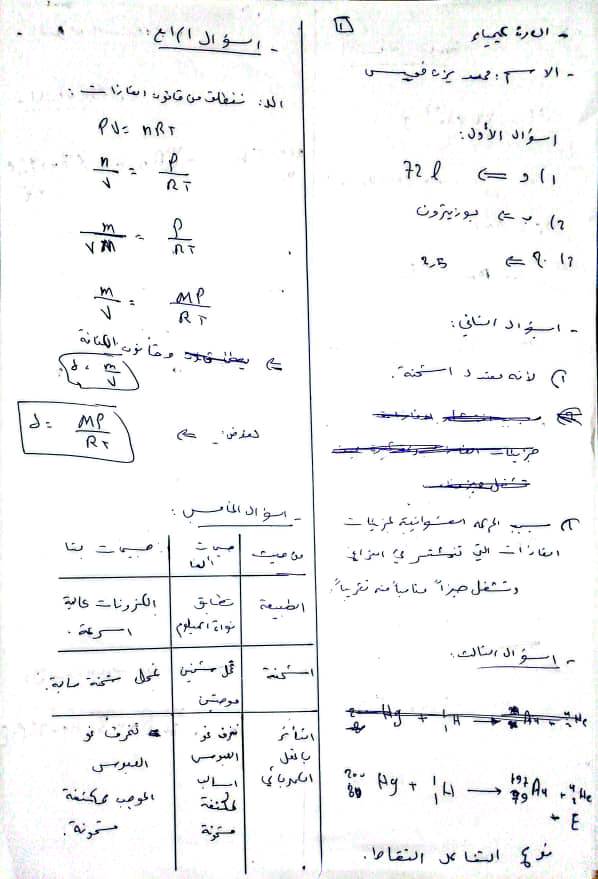 1
- المادة كيمياء
- الاسم: محمد يزن
السؤال الأول:
1) و => 72 l
2) ب => بوزيترون
3) => 2,5
- السؤال الثاني:
1) لأنه معتدل الشحنة.
2) بسبب الحركة العشوائية لجزيئات
الغازات التي تنتشر في الفراغ
وتشغل حيزاً متناسباً منه تقريباً.
- السؤال الثالث:
²⁰⁰₈₀Hg + ¹₁H → ¹⁹⁷₇₉Au + ⁴₂He
+ E
نوع التفاعل التقاط.
- السؤال الرابع:
ننطلق من قانون الغازات:
PV = nRT
n/V = P/RT
m/VM = P/RT
m/V = MP/RT
=> وقانون الكثافة
d = m/V
نعوض: => d = MP/RT
- السؤال الخامس:
من حيث | جسيمات ألفا | جسيمات بيتا
الطبيعة | تطابق نواة الهيليوم | الكترونات عالية السرعة.
الشحنة | تحمل شحنتين موجبتين | تحمل شحنة سالبة.
التأثر بالحقل الكهربائي | تنحرف نحو اللبوس السالب لمكثفة مشحونة | تنحرف نحو اللبوس الموجب لمكثفة مشحونة.